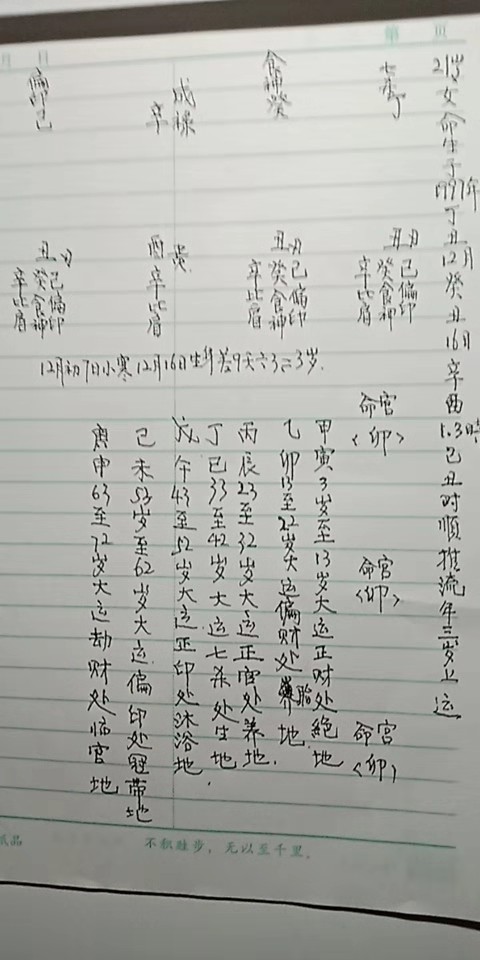 第 页
月 日
21岁女命生于1997年丁丑12月癸丑16日辛酉1.3時己丑时順推流年三岁上运
七杀丁
食神癸
成祿
辛
偏印己
丑月
己偏印
癸食神
辛比肩
丑月
己偏印
癸食神
辛比肩
酉
辛比肩
丑月
己偏印
癸食神
辛比肩
12月初7日小寒12月16日生
命宫
<卯>
命宫
<卯>
命宫
<卯>
甲寅3岁至13岁大运正财处絶地
乙卯13至22岁大运偏财处胎地.
丙辰23至32岁大运正官处养地.
丁巳33至42岁大运七杀处生地.
戊午43至52岁大运正印处沐浴地
己未53岁至62岁大运偏印处冠带地
庚申63至72岁大运劫财处临官地
纸品
不积跬步，无以至千里.